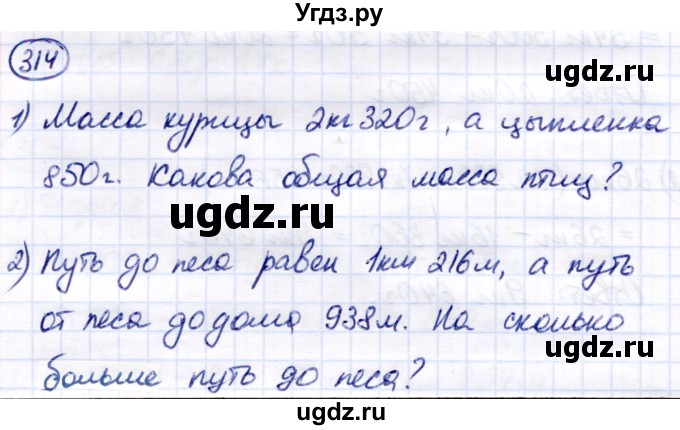 Угдз.ру
314
ugdz.ru
1) Масса курицы 2кг 320г, а цыпленка
850г. Какова общая масса птиц?
ugdz.ru
2) Путь до леса равен 1км 216м, а путь
от леса до дома 938м. На сколько
ugdz.ru
больше путь до леса?
ugdz.ru